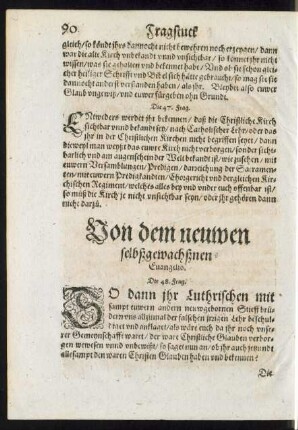 90 Fragstuck
gleich / so köndt jhrs dannocht nicht bewehren noch erzeygen / dann
war die alt Kirch vnbekandt vnnd vnsichtbar / so könnet jhr nicht
wissen / was sie gehalten vnd bekennet habe / Vnd ob sie schon gleicher
heiliger Schrifft vnd Bibel sich hätte gebraucht / so mag sie sie
dannocht anderst verstanden haben / als jhr. Bleybet also euwer
Glaub vngewiß / vnd euwer fürgeben ohn Grundt.
Die 47. Frag.
ENtweders werdet jhr bekennen / daß die Christliche Kirch
sichtbar vnnd bekandt seye / nach Catholischer Lehr / oder das
jhr in der Christlichen Kirchen nicht begriffen seyet / dann
dieweyl man weyßt das euwer Kirch nicht verborgen / sonder sichtbarlich
vnd am augenschein der Welt bekandt ist / wie zusehen / mit
euwren Versamblungen / Predigen / darreichung der Sacramenten /
mit euwren Predigkandten / Chorgericht vnd dergleichen Kirchischen
Regiment / welches alles bey vnd vnder euch offenbar ist /
so muß die Kirch je nicht vnsichtbar seyn / oder jhr gehören dann
nicht darzü.
Von dem neuwen
selbßgewachßnen
Euangelio.
Die 48. Frag.
SO dann jhr Lutherischen mit
sampt euwern andern neuwgebornen Stieffbrüdern
vns allzumal der falschen jrrigen Lehr beschuldiget
vnd anklaget / als wäre euch da jhr noch vnserer
Gemeynschafft waret / der ware Christliche Glauben verborgen
gewesen vnnd vnbewißt / so saget mir an / ob jhr auch jetzundt
alle sampt den waren Christen Glauben haben vnd bekennen?
Die